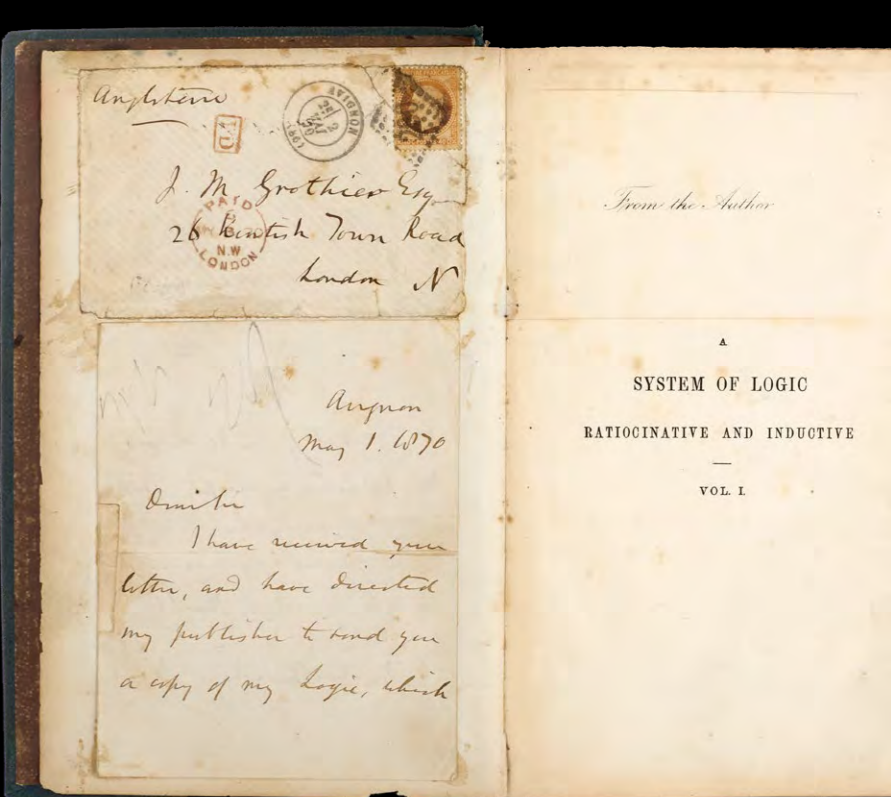 Angleterre
PD
AVIGNON
2
MAI
70
J. M. Grothier Esq
PAID
26 Kentish Town Road
N.W
LONDON
London N
Avignon
May 1. 1870
Dear Sir
I have received your
letter, and have directed
my publisher to send you
a copy of my Logic, which
From the Author
A
SYSTEM OF LOGIC
RATIOCINATIVE AND INDUCTIVE
VOL. I.